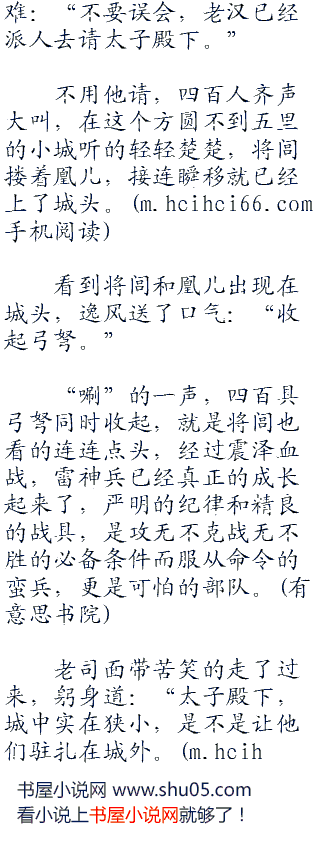 难：“不要误会，老汉已经
派人去请太子殿下。”
不用他请，四百人齐声
大叫，在这个方圆不到五里
的小城听的轻轻楚楚，将闾
搂着凰儿，接连瞬移就已经
上了城头。(m.hcihci66.com
手机阅读)
看到将闾和凰儿出现在
城头，逸风送了口气：“收
起弓弩。”
“唰”的一声，四百具
弓弩同时收起，就是将闾也
看的连连点头，经过震泽血
战，雷神兵已经真正的成长
起来了，严明的纪律和精良
的战具，是攻无不克战无不
胜的必备条件而服从命令的
蛮兵，更是可怕的部队。(有
意思书院)
老司面带苦笑的走了过
来，躬身道：“太子殿下，
城中实在狭小，是不是让他
们驻扎在城外。(m.hcih
书屋小说网 www.shu05.com
看小说上书屋小说网就够了！